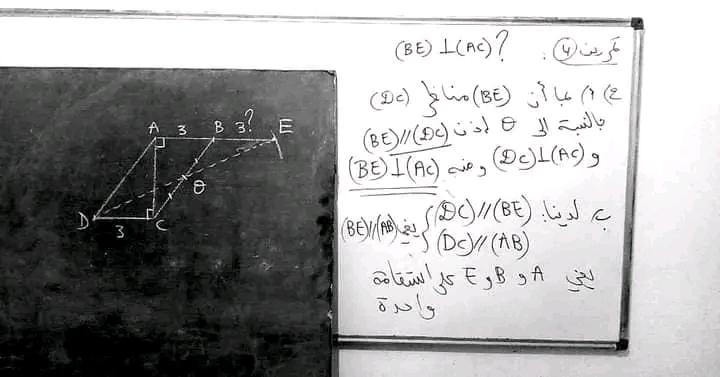 تمرين 4: (BE) ⊥ (AC) ?
ج) أ) بما أن (BE) مناظر (DC)
بالنسبة إلى O إذن (BE) // (DC)
و (DC) ⊥ (AC) ومنه (BE) ⊥ (AC)
ب) لدينا: { (DC) // (BE) يعني (BE) // (AB)
(DC) // (AB)
يعني A و B و E على استقامة
واحدة
A 3 B 3? E
O
D 3 C